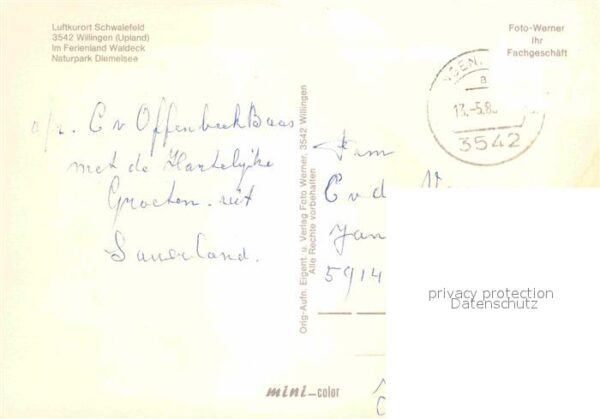 Luftkurort Schwalefeld
3542 Willingen (Upland)
im Ferienland Waldeck
Naturpark Diemelsee
Foto-Werner
Ihr
Fachgeschäft
13.-5.8
3542
a/z. C v Offenbeek Baas
met de Hartelijke
Groeten. uit
Sauerland.
Orig.-Aufn. Eigent. u. Verlag Foto Werner, 3542 Willingen
Alle Rechte vorbehalten
Fam
C v d V
Jan
5914
privacy protection
Datenschutz
mini-color